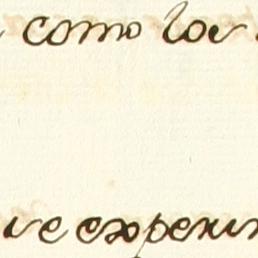 como los
ue experim